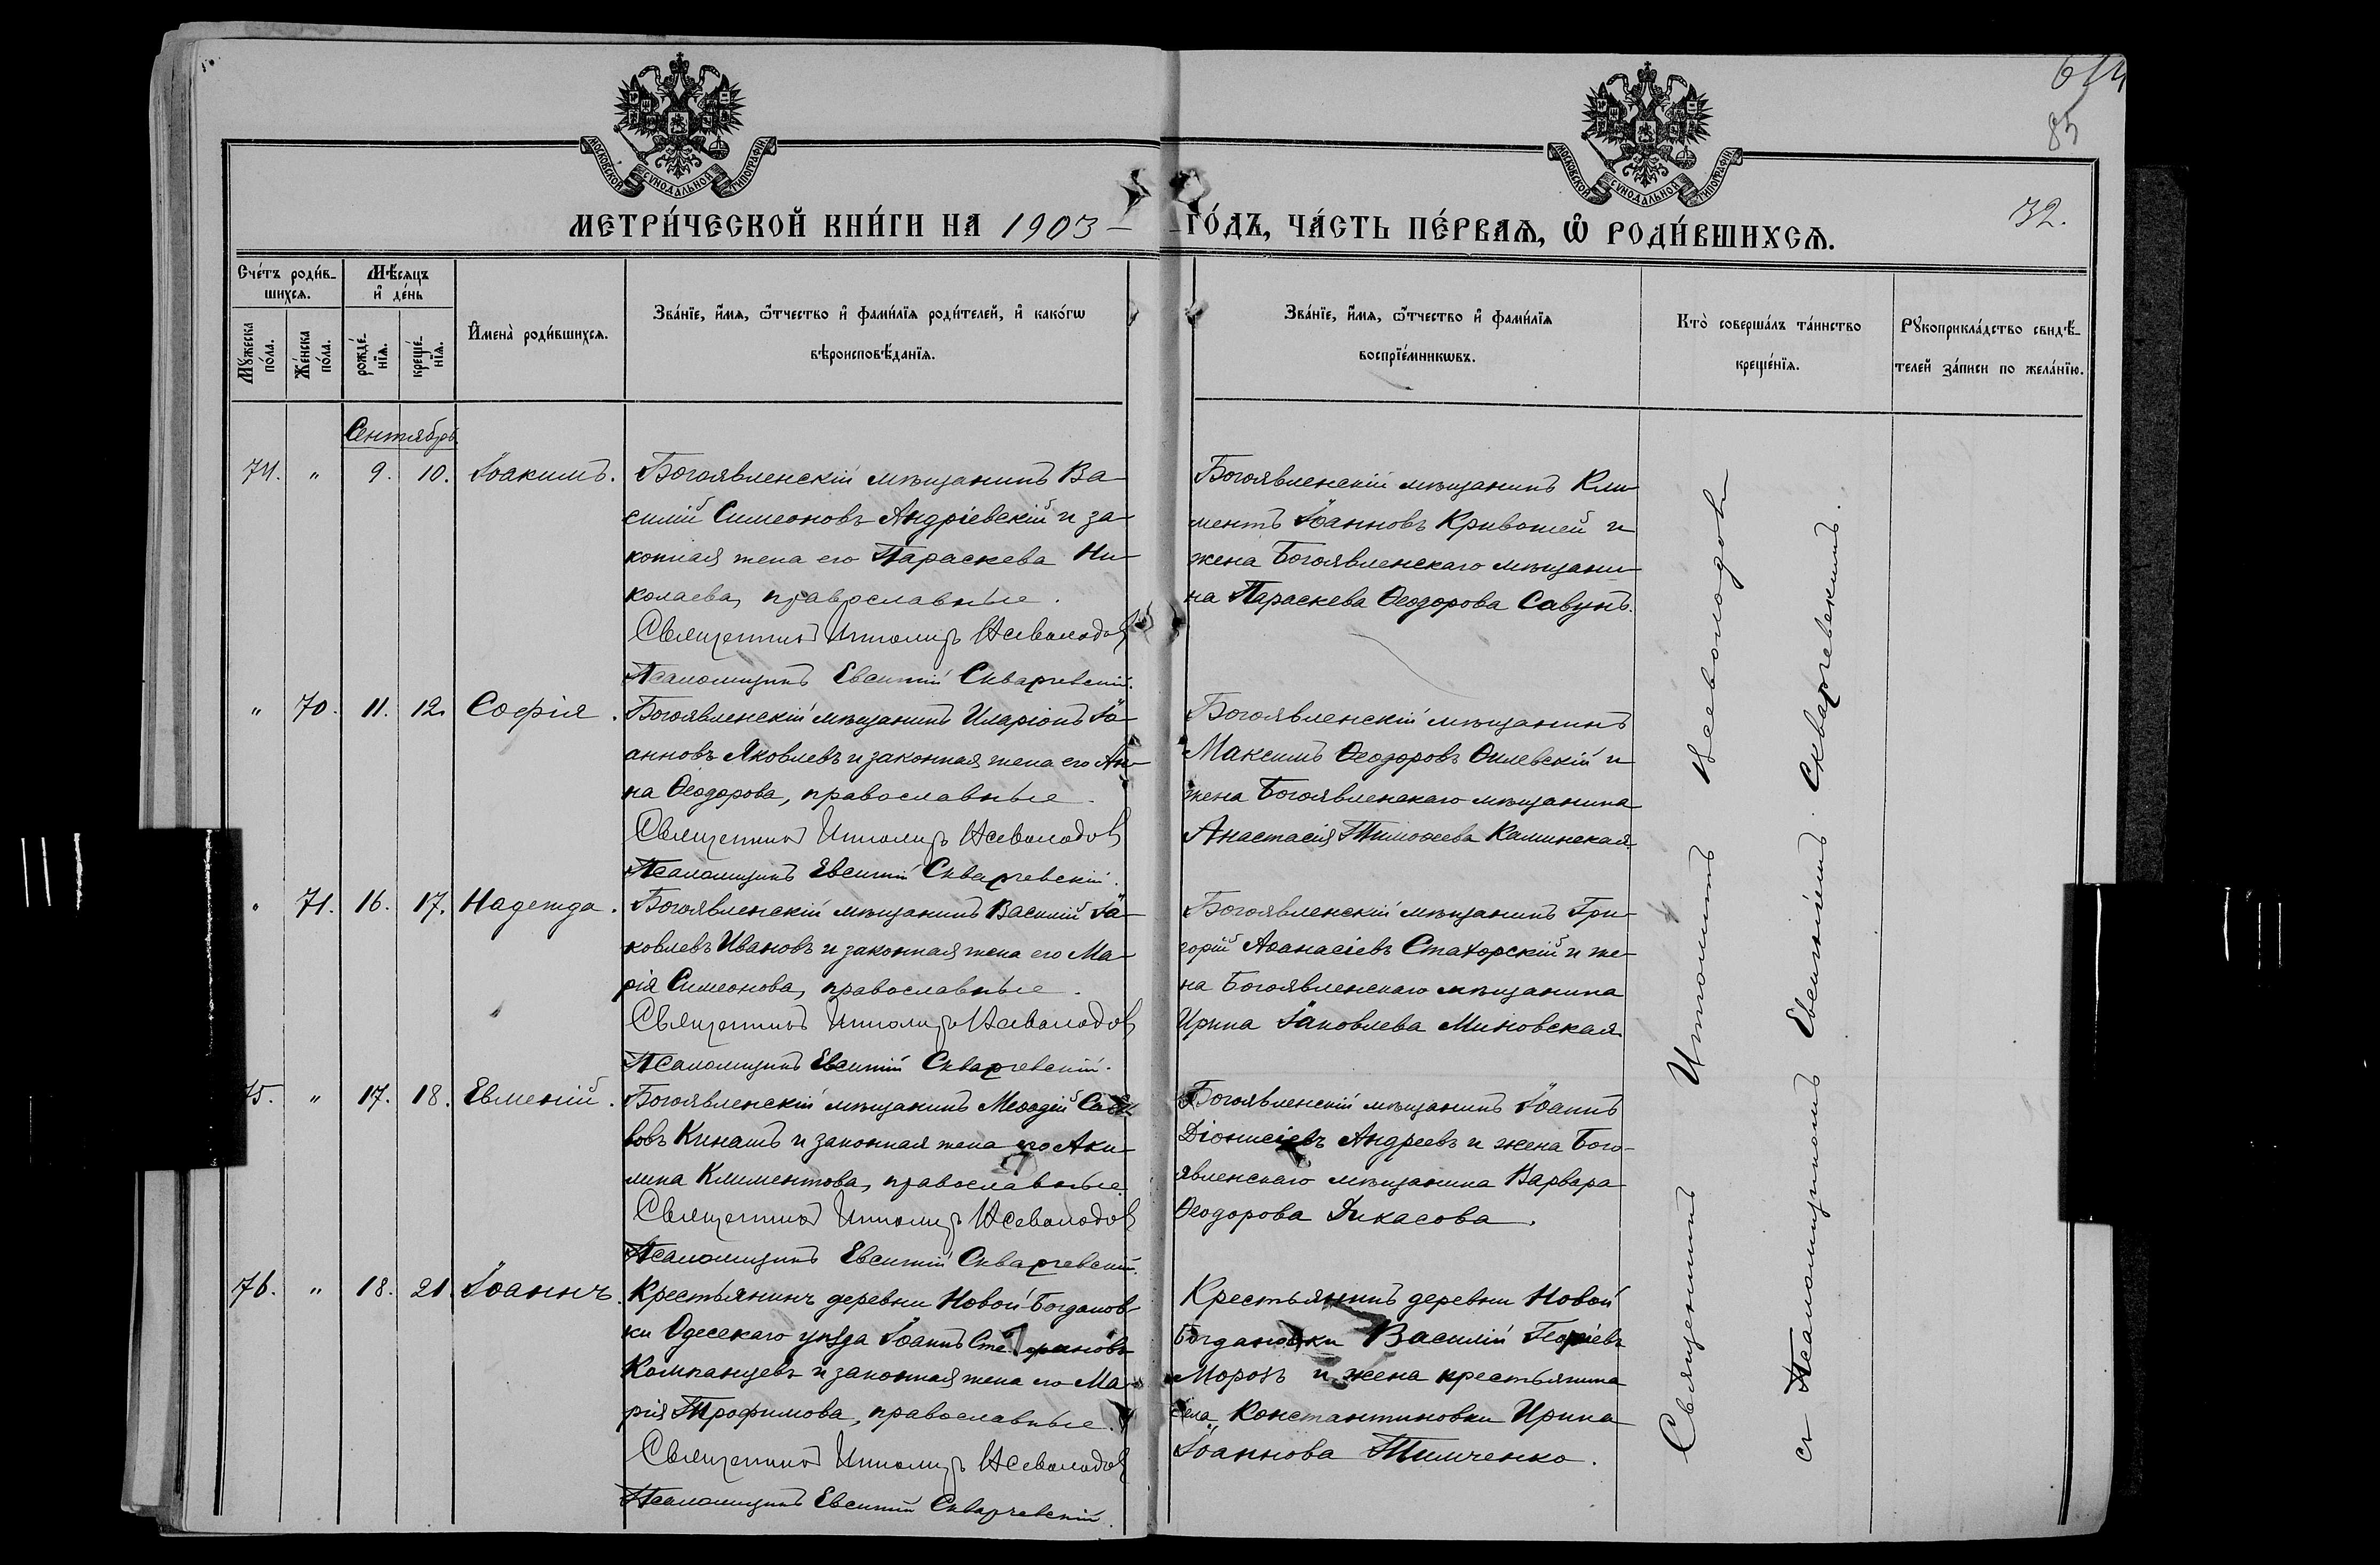 614
85
32.
МОСКОВСКОЙ СѴНОДАЛЬНОЙ ТИПОГРАФІИ
МОСКОВСКОЙ СѴНОДАЛЬНОЙ ТИПОГРАФІИ
МЕТРИ́ЧЕСКОЙ КНИ́ГИ НА 1903 – ГО́ДЪ, ЧА́СТЬ ПЕ́РВАѦ, Ѽ РОДИ́ВШИХСѦ.
Сче́тъ роди́в-
шихсѧ.
Мѣ́сѧцъ
и҆ де́нь
Мꙋ́жеска
по́ла.
Же́нска
по́ла.
рожде́-
нїѧ.
креще́-
нїѧ.
И҆мена̀ роди́вшихсѧ.
Зва́нїе, и҆́мѧ, ѻ҆́тчество и҆ фами́лїѧ роди́телей, и҆ како́гѡ
вѣроисповѣ́данїѧ.
Зва́нїе, и҆́мѧ, ѻ҆́тчество и҆ фами́лїѧ
воспрїе́мникѡвъ.
Кто̀ соверша́лъ та́инство
креще́нїѧ.
Рꙋкоприкла́дство свидѣ́-
телей за́писи по жела́нїю.
Сентябрь.
74. " 9. 10. Іоакимъ.
Богоявленскій мѣщанинъ Ва-
силій Симеоновъ Андріевскій и за-
конная жена его Параскева Ни-
колаева, православные.
Священникъ Ипполитъ Всеволодовъ
Псаломщикъ Евсигній Скваржевскій.
Богоявленскій мѣщанинъ Кли-
ментъ Іоанновъ Кривошей и
жена Богоявленскаго мѣщани-
на Параскева Ѳеодорова Савунъ.
" 70. 11. 12. Софія.
Богоявленскій мѣщанинъ Иларіонъ Іо-
анновъ Яковлевъ и законная жена его Ан-
на Ѳеодорова, православные.
Священникъ Ипполитъ Всеволодовъ
Псаломщикъ Евсигній Скваржевскій.
Богоявленскій мѣщанинъ
Максимъ Ѳеодоровъ Ѳилевскій и
жена Богоявленскаго мѣщанина
Анастасія Тимоѳеева Каминская.
" 71. 16. 17. Надежда.
Богоявленскій мѣщанинъ Василій Іа-
ковлевъ Ивановъ и законная жена его Ма-
рія Симеонова, православные.
Священникъ Ипполитъ Всеволодовъ
Псаломщикъ Евсигній Скваржевскій.
Богоявленскій мѣщанинъ Гри-
горій Аѳанасіевъ Стахорскій и же-
на Богоявленскаго мѣщанина
Ирина Іаковлева Миновская.
75. " 17. 18. Евменій.
Богоявленскій мѣщанинъ Меѳодій Сав-
вовъ Кинашъ и законная жена его Аки-
лина Климентова, православные.
Священникъ Ипполитъ Всеволодовъ
Псаломщикъ Евсигній Скваржевскій.
Богоявленскій мѣщанинъ Іоаннъ
Діонисіевъ Андреевъ и жена Бого-
явленскаго мѣщанина Варвара
Ѳеодорова Дикасова.
76. " 18. 21. Іоаннъ.
Крестьянинъ деревни Новой-Богданов-
ки Одесскаго уѣзда Іоаннъ Стефановъ
Компанцевъ и законная жена его Ма-
рія Трофимова, православные.
Священникъ Ипполитъ Всеволодовъ
Псаломщикъ Евсигній Скваржевскій.
Крестьянинъ деревни Новой
Богдановки Василій Георгіевъ
Морозъ и жена крестьянина
села Константиновки Ирина
Іоаннова Тимченко.
Священникъ Ипполитъ Всеволодовъ
съ Псаломщикомъ Евсигніемъ Скваржевскимъ.